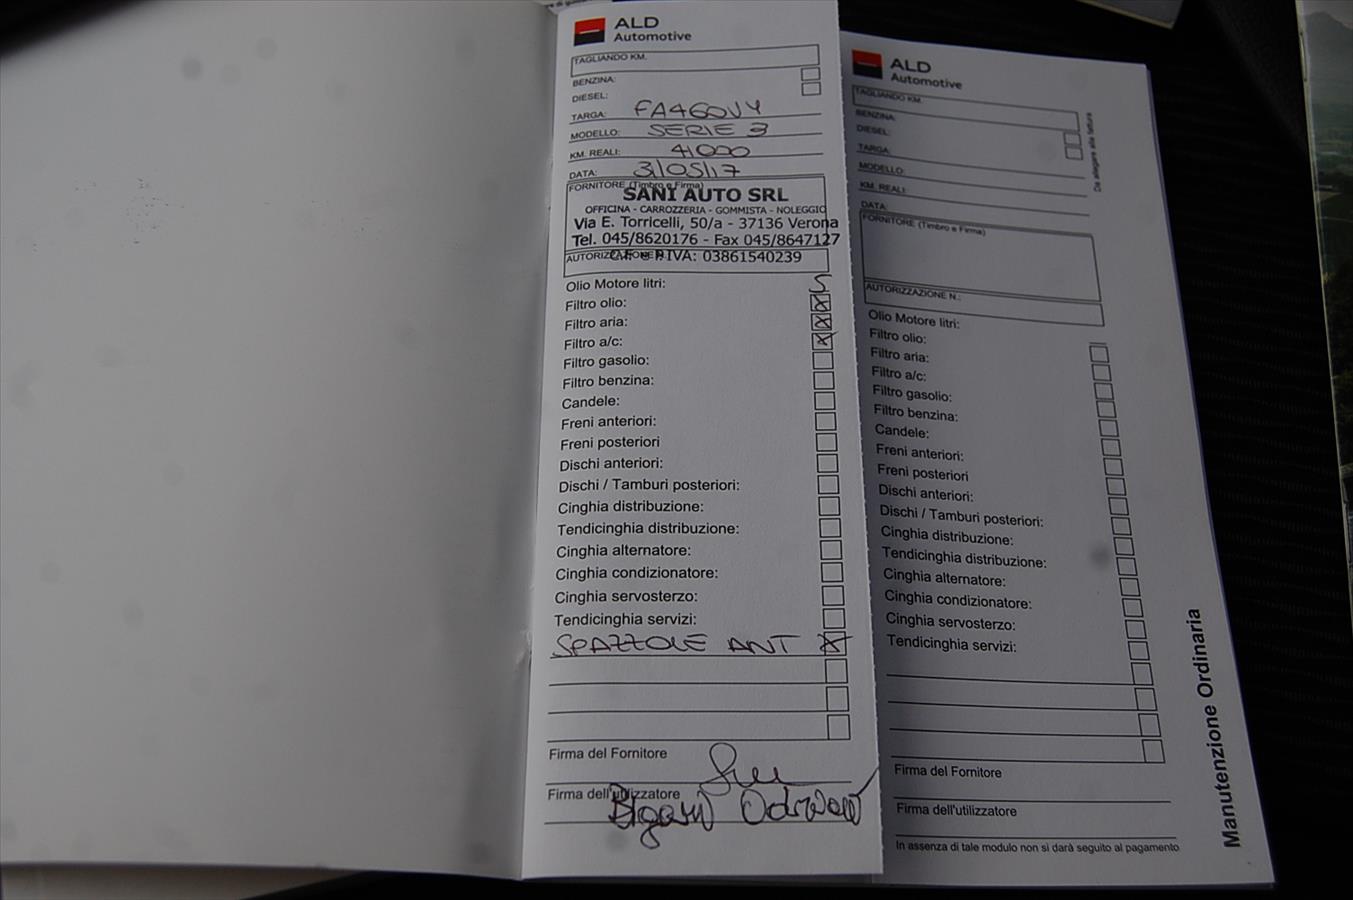 ALD
Automotive
TAGLIANDO KM.
BENZINA:
DIESEL:
TARGA: FA460VY
MODELLO: SERIE 3
KM. REALI: 41000
DATA: 31/05/17
FORNITORE (Timbro e Firma)
SANI AUTO SRL
OFFICINA - CARROZZERIA - GOMMISTA - NOLEGGIO
Via E. Torricelli, 50/a - 37136 Verona
Tel. 045/8620176 - Fax 045/8647127
AUTORIZZAZIONE N.:
C.F. e P.IVA: 03861540239
Olio Motore litri: 5
Filtro olio: X
Filtro aria: X
Filtro a/c: X
Filtro gasolio:
Filtro benzina:
Candele:
Freni anteriori:
Freni posteriori
Dischi anteriori:
Dischi / Tamburi posteriori:
Cinghia distribuzione:
Tendicinghia distribuzione:
Cinghia alternatore:
Cinghia condizionatore:
Cinghia servosterzo:
Tendicinghia servizi:
SPAZZOLE ANT X
Firma del Fornitore
Firma dell'utilizzatore
ALD
Automotive
TAGLIANDO KM.
BENZINA:
DIESEL:
TARGA:
MODELLO:
KM. REALI:
DATA:
FORNITORE (Timbro e Firma)
AUTORIZZAZIONE N.:
Olio Motore litri:
Filtro olio:
Filtro aria:
Filtro a/c:
Filtro gasolio:
Filtro benzina:
Candele:
Freni anteriori:
Freni posteriori
Dischi anteriori:
Dischi / Tamburi posteriori:
Cinghia distribuzione:
Tendicinghia distribuzione:
Cinghia alternatore:
Cinghia condizionatore:
Cinghia servosterzo:
Tendicinghia servizi:
Firma del Fornitore
Firma dell'utilizzatore
In assenza di tale modulo non si darà seguito al pagamento
Da allegare alla fattura
Manutenzione Ordinaria